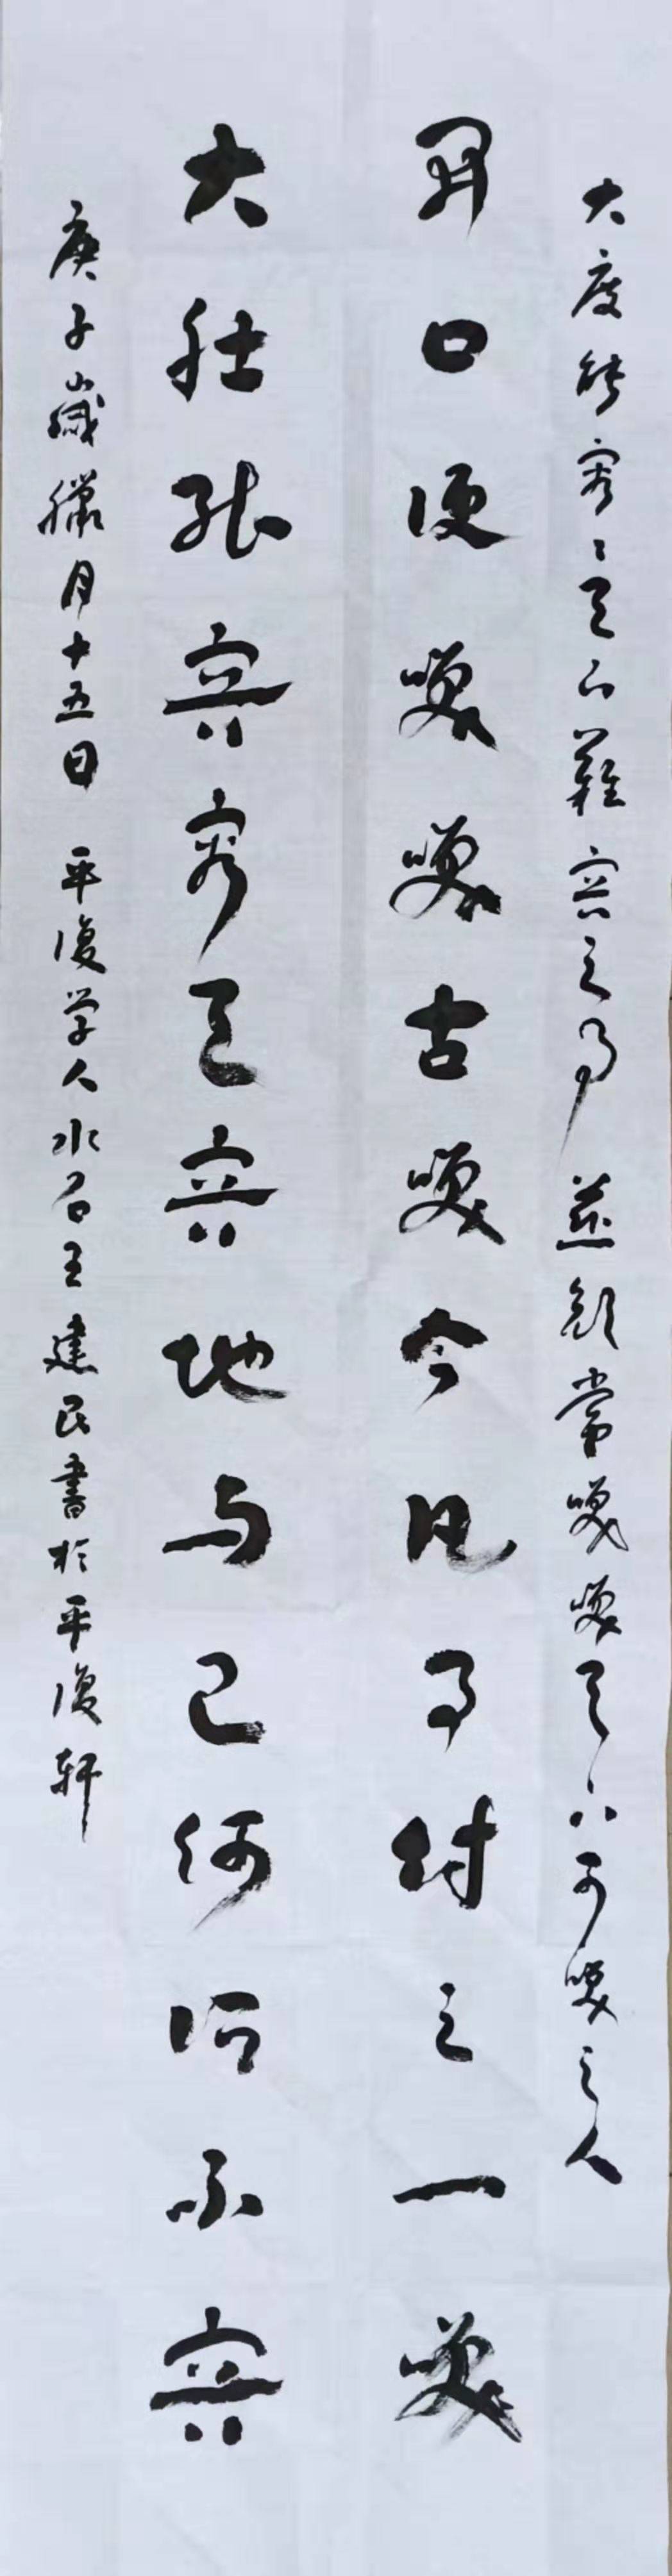 大度能容容天下難容之事慈顔常咲咲天下可咲之人
開口便咲咲古咲今凡事付之一咲
大肚能容容天容地与己何所不容
庚子歲臘月十五日 平復学人水石王建民書於平復軒